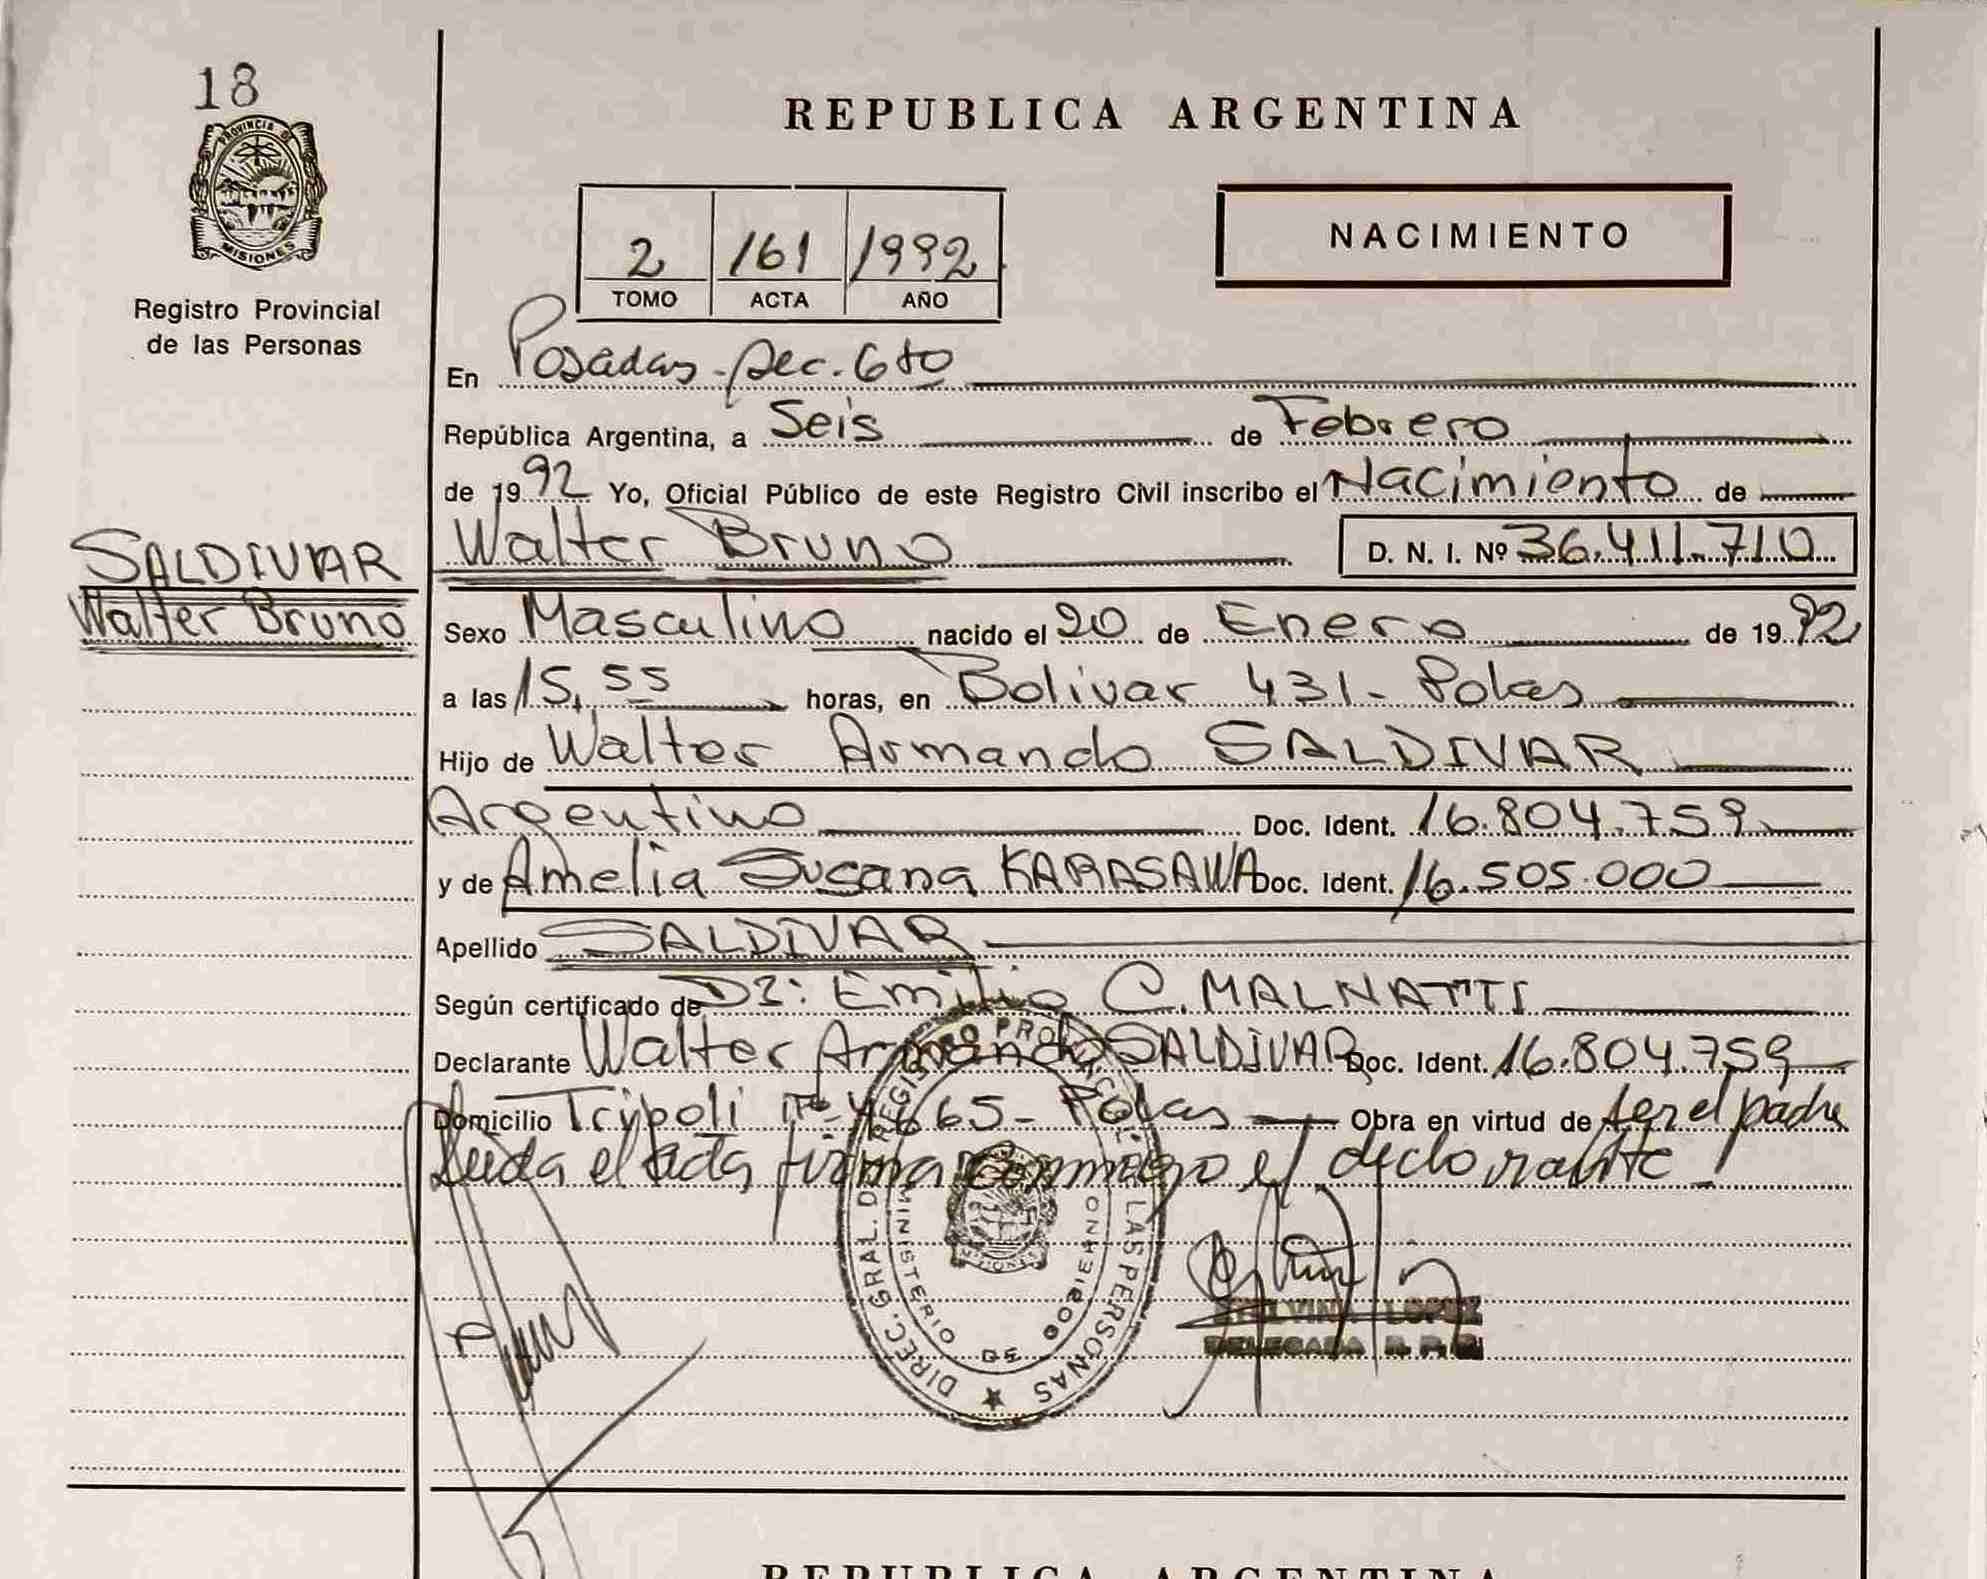 18
PROVINCIA DE
MISIONES
Registro Provincial
de las Personas
SALDIVAR
Walter Bruno
REPUBLICA ARGENTINA
2 161 1992
TOMO ACTA AÑO
NACIMIENTO
En Posadas - Sec. 6to
República Argentina, a Seis de Febrero
de 1992 Yo, Oficial Público de este Registro Civil inscribo el Nacimiento de
Walter Bruno D. N. I. Nº 36.411.710
Sexo Masculino nacido el 20 de Enero de 1992
a las 15,55 horas, en Bolivar 431 - Pdas
Hijo de Walter Armando SALDIVAR
Argentino Doc. Ident. 16.804.759
y de Amelia Susana KARASAWA Doc. Ident. 16.505.000
Apellido SALDIVAR
Según certificado de Dr: Emilio C. MALNATTI
Declarante Walter Armando SALDIVAR Doc. Ident. 16.804.759
Domicilio Tripoli Nº 4665 - Pdas Obra en virtud de ser el padre
Leida el acta, firma conmigo el declarante
DIREC. GRAL. DEL REGISTRO PROVINCIAL DE LAS PERSONAS
MINISTERIO DE GOBIERNO
LOPEZ
DELEGADA R. P. P.
REPUBLICA ARGENTINA